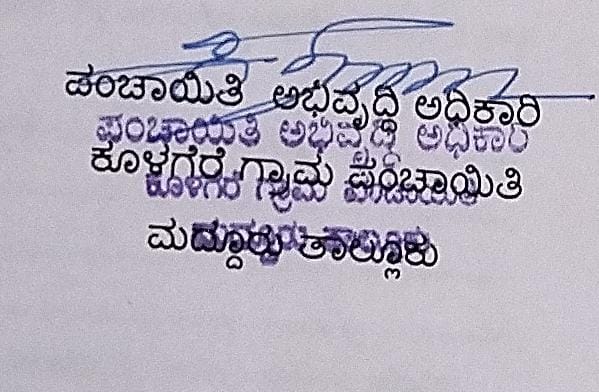 ಪಂಚಾಯಿತಿ ಅಭಿವೃದ್ಧಿ ಅಧಿಕಾರಿ
ಪಂಚಾಯಿತಿ ಅಭಿವೃದ್ಧಿ ಅಧಿಕಾರಿ
ಕೂಳಗೆರೆ ಗ್ರಾಮ ಪಂಚಾಯಿತಿ
ಕೂಳಗೆರೆ ಗ್ರಾಮ ಪಂಚಾಯಿತಿ
ಮದ್ದೂರು ತಾಲ್ಲೂಕು